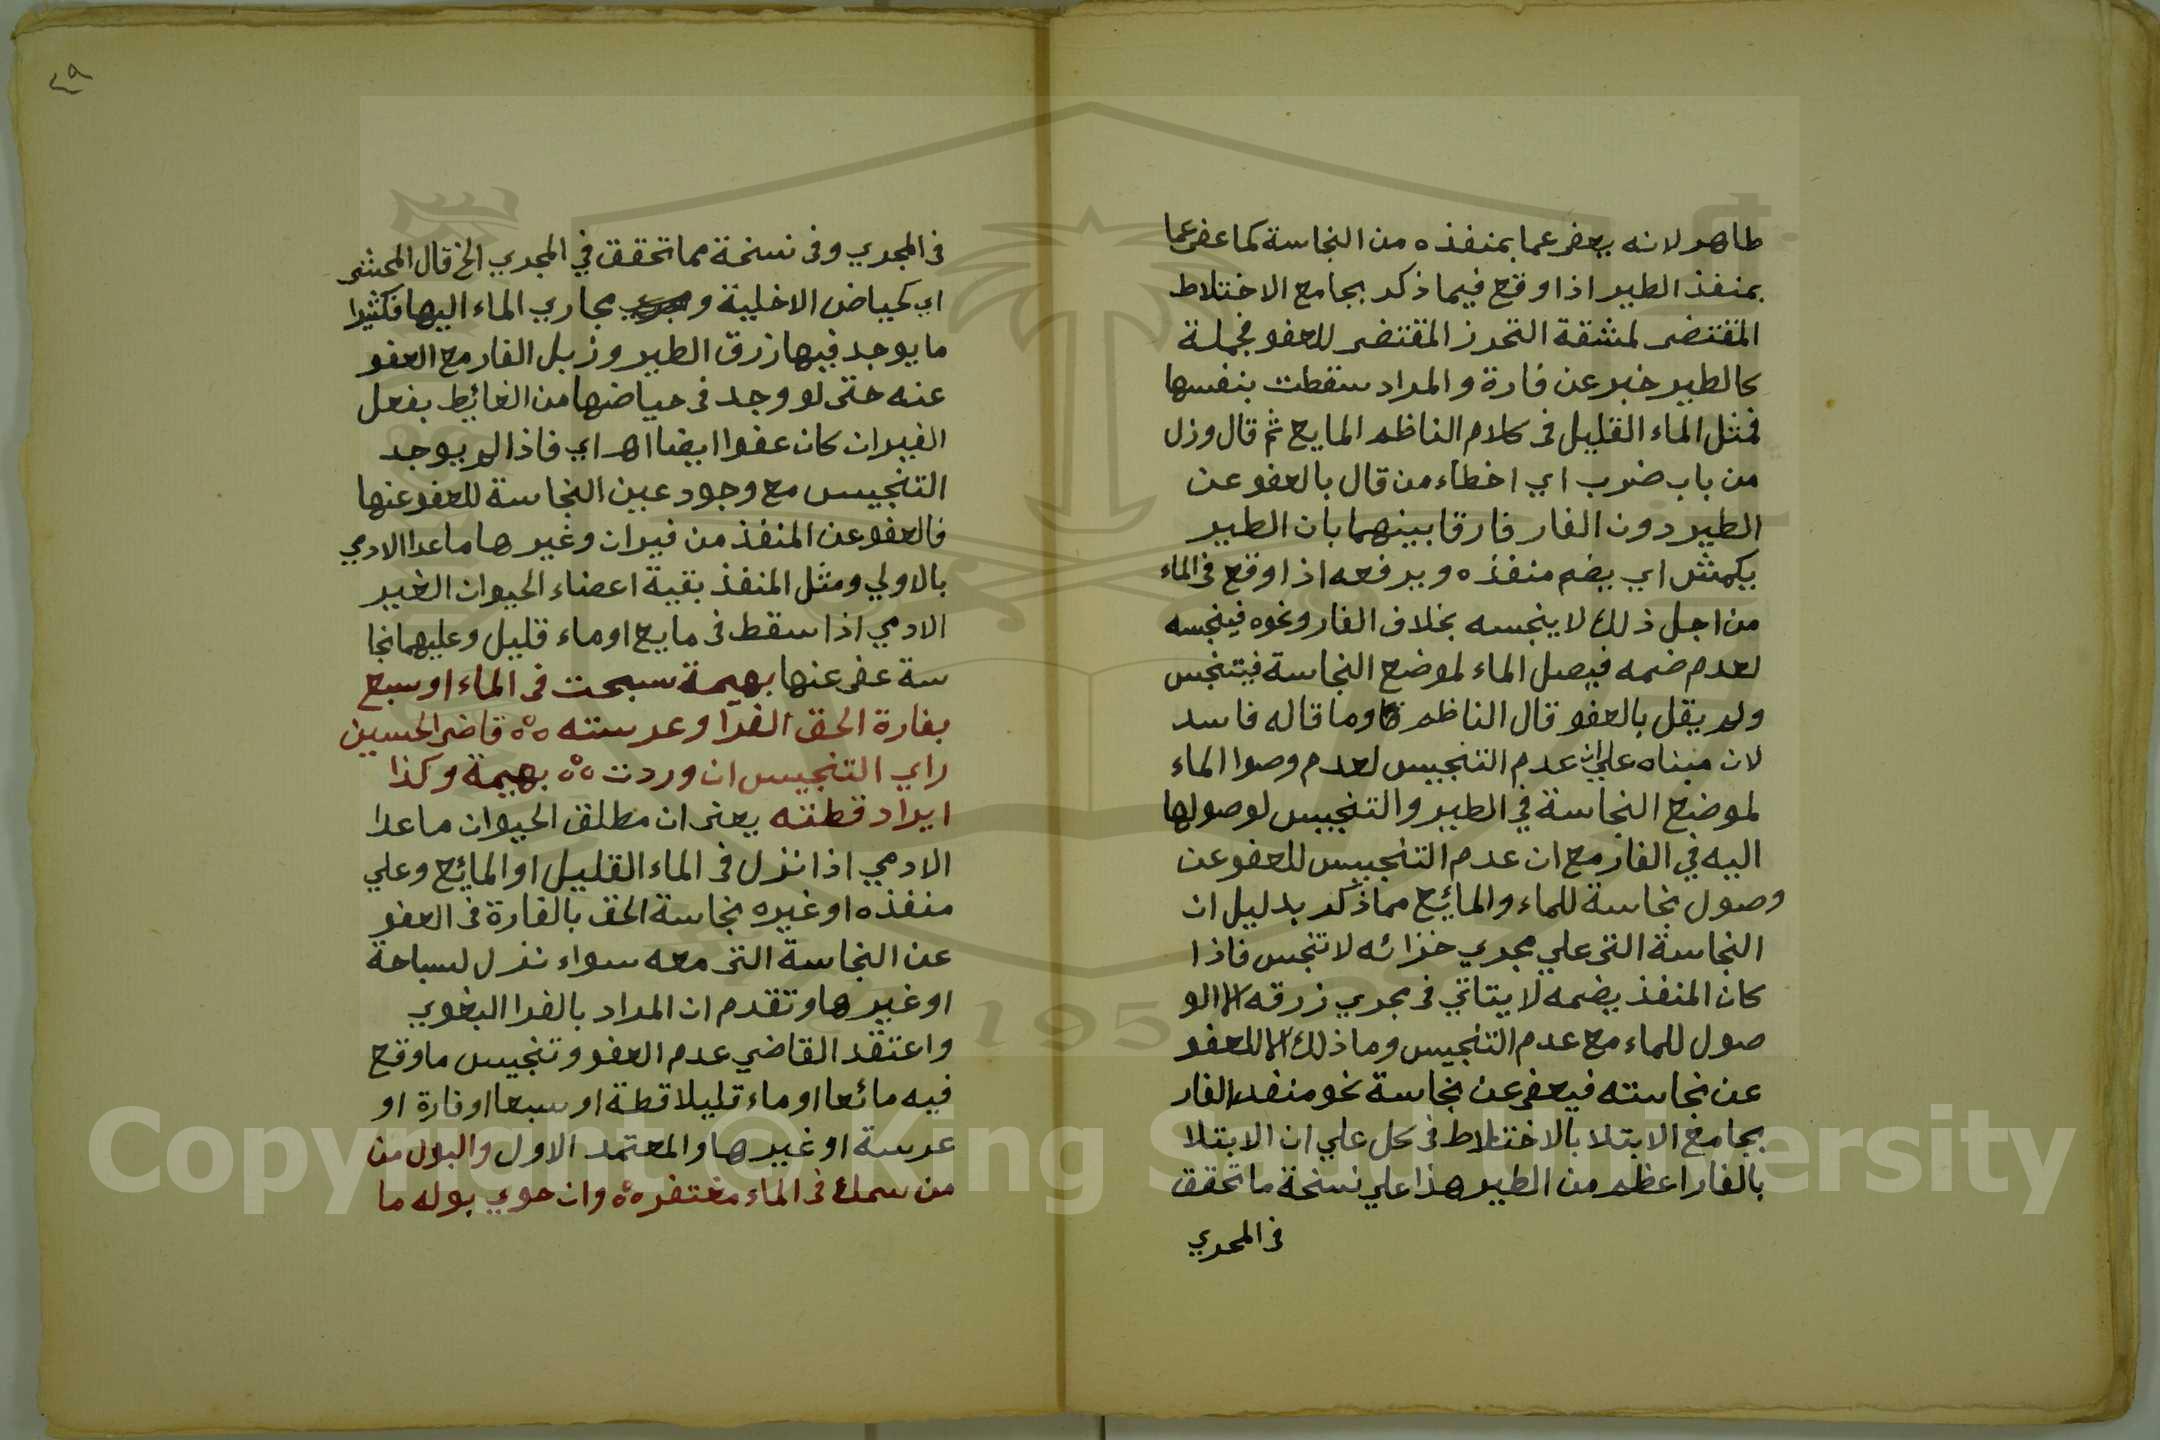 طاهر لانه يعفى عما بمنفذه من النجاسة كما عفى عما
بمنفذ الطير اذا وقع فيما ذكر بجامع الاختلاط
المقتضى لمشقة التحرز المقتضى للعفو فجملة
كالطير خبر عن فارة والمراد سقطت بنفسها
فمثل الماء القليل فى كلام الناظم المايع ثم قال وزل
من باب ضرب اي اخطاء من قال بالعفو عن
الطير دون الفار فارقا بينهما بان الطير
يكمش اي يضم منفذه ويرفعه اذا وقع فى الماء
من اجل ذلك لا ينجسه بخلاف الفار ونحوه فينجسه
لعدم ضمه فيصل الماء لموضع النجاسة فيتنجس
ولم يقل بالعفو قال الناظم وما قاله فاسد
لان مبناه على ان عدم التنجيس لعدم وصوا الماء
لموضع النجاسة في الطير والتنجيس لوصولها
اليه في الفار مع ان عدم التنجيس للعفو عن
وصول نجاسة للماء والمائع مما ذكر بدليل ان
النجاسة التى علي مجري خزائه لا تنجس فاذا
كان المنفذ يضمه لا يتاتي فى مجري زرقه الا الو
صول للماء مع عدم التنجيس وما ذلك الا للعفو
عن نجاسته فيعفى عن نجاسة نحو منفذ الفار
بجامع الابتلا بالاختلاط فى كل علي ان الابتلا
بالفار اعظم من الطير هذا علي نسخة ما تحقق
فى المجري
٤٩
فى المجري وفى نسخة مما تحقق في المجري الخ قال المحشى
اي كحياض الاخلية و مجاري الماء اليها فكثيرا
ما يوجد فيها زرق الطير وزبل الفار مع العفو
عنه حتى لو وجد فى حياضها من الغائط بفعل
الفيران كان عفوا ايضا اهـ اي فاذا لم يوجد
التنجيس مع وجود عين النجاسة للعفو عنها
فالعفو عن المنفذ من فيران وغيرها ما عدا الادمي
بالاولي ومثل المنفذ بقية اعضاء الحيوان الغير
الادمي اذا سقط فى مايع او ماء قليل وعليهما نجا
سة عفى عنها بهيمة سبحت فى الماء او سبع
بفارة الحق الفرا وعرسته قاضى الحسين
راي التنجيس ان وردت بهيمة وكذا
ايراد قطته يعنى ان مطلق الحيوان ما عدا
الادمي اذا نزل فى الماء القليل او المائع وعلي
منفذه او غيره نجاسة الحق بالفارة فى العفو
عن النجاسة التى معه سواء نزل لسباحة
او غيرها وتقدم ان المراد بالفرا البغوي
واعتقد القاضي عدم العفو وتنجيس ما وقع
فيه مائعا او ماء قليلا قطة او سبعا او فارة او
عرسة او غيرها والمعتمد الاول والبول من
من سمك فى الماء مغتفر وان حوي بوله ما
Copyright © King Saud University
1957